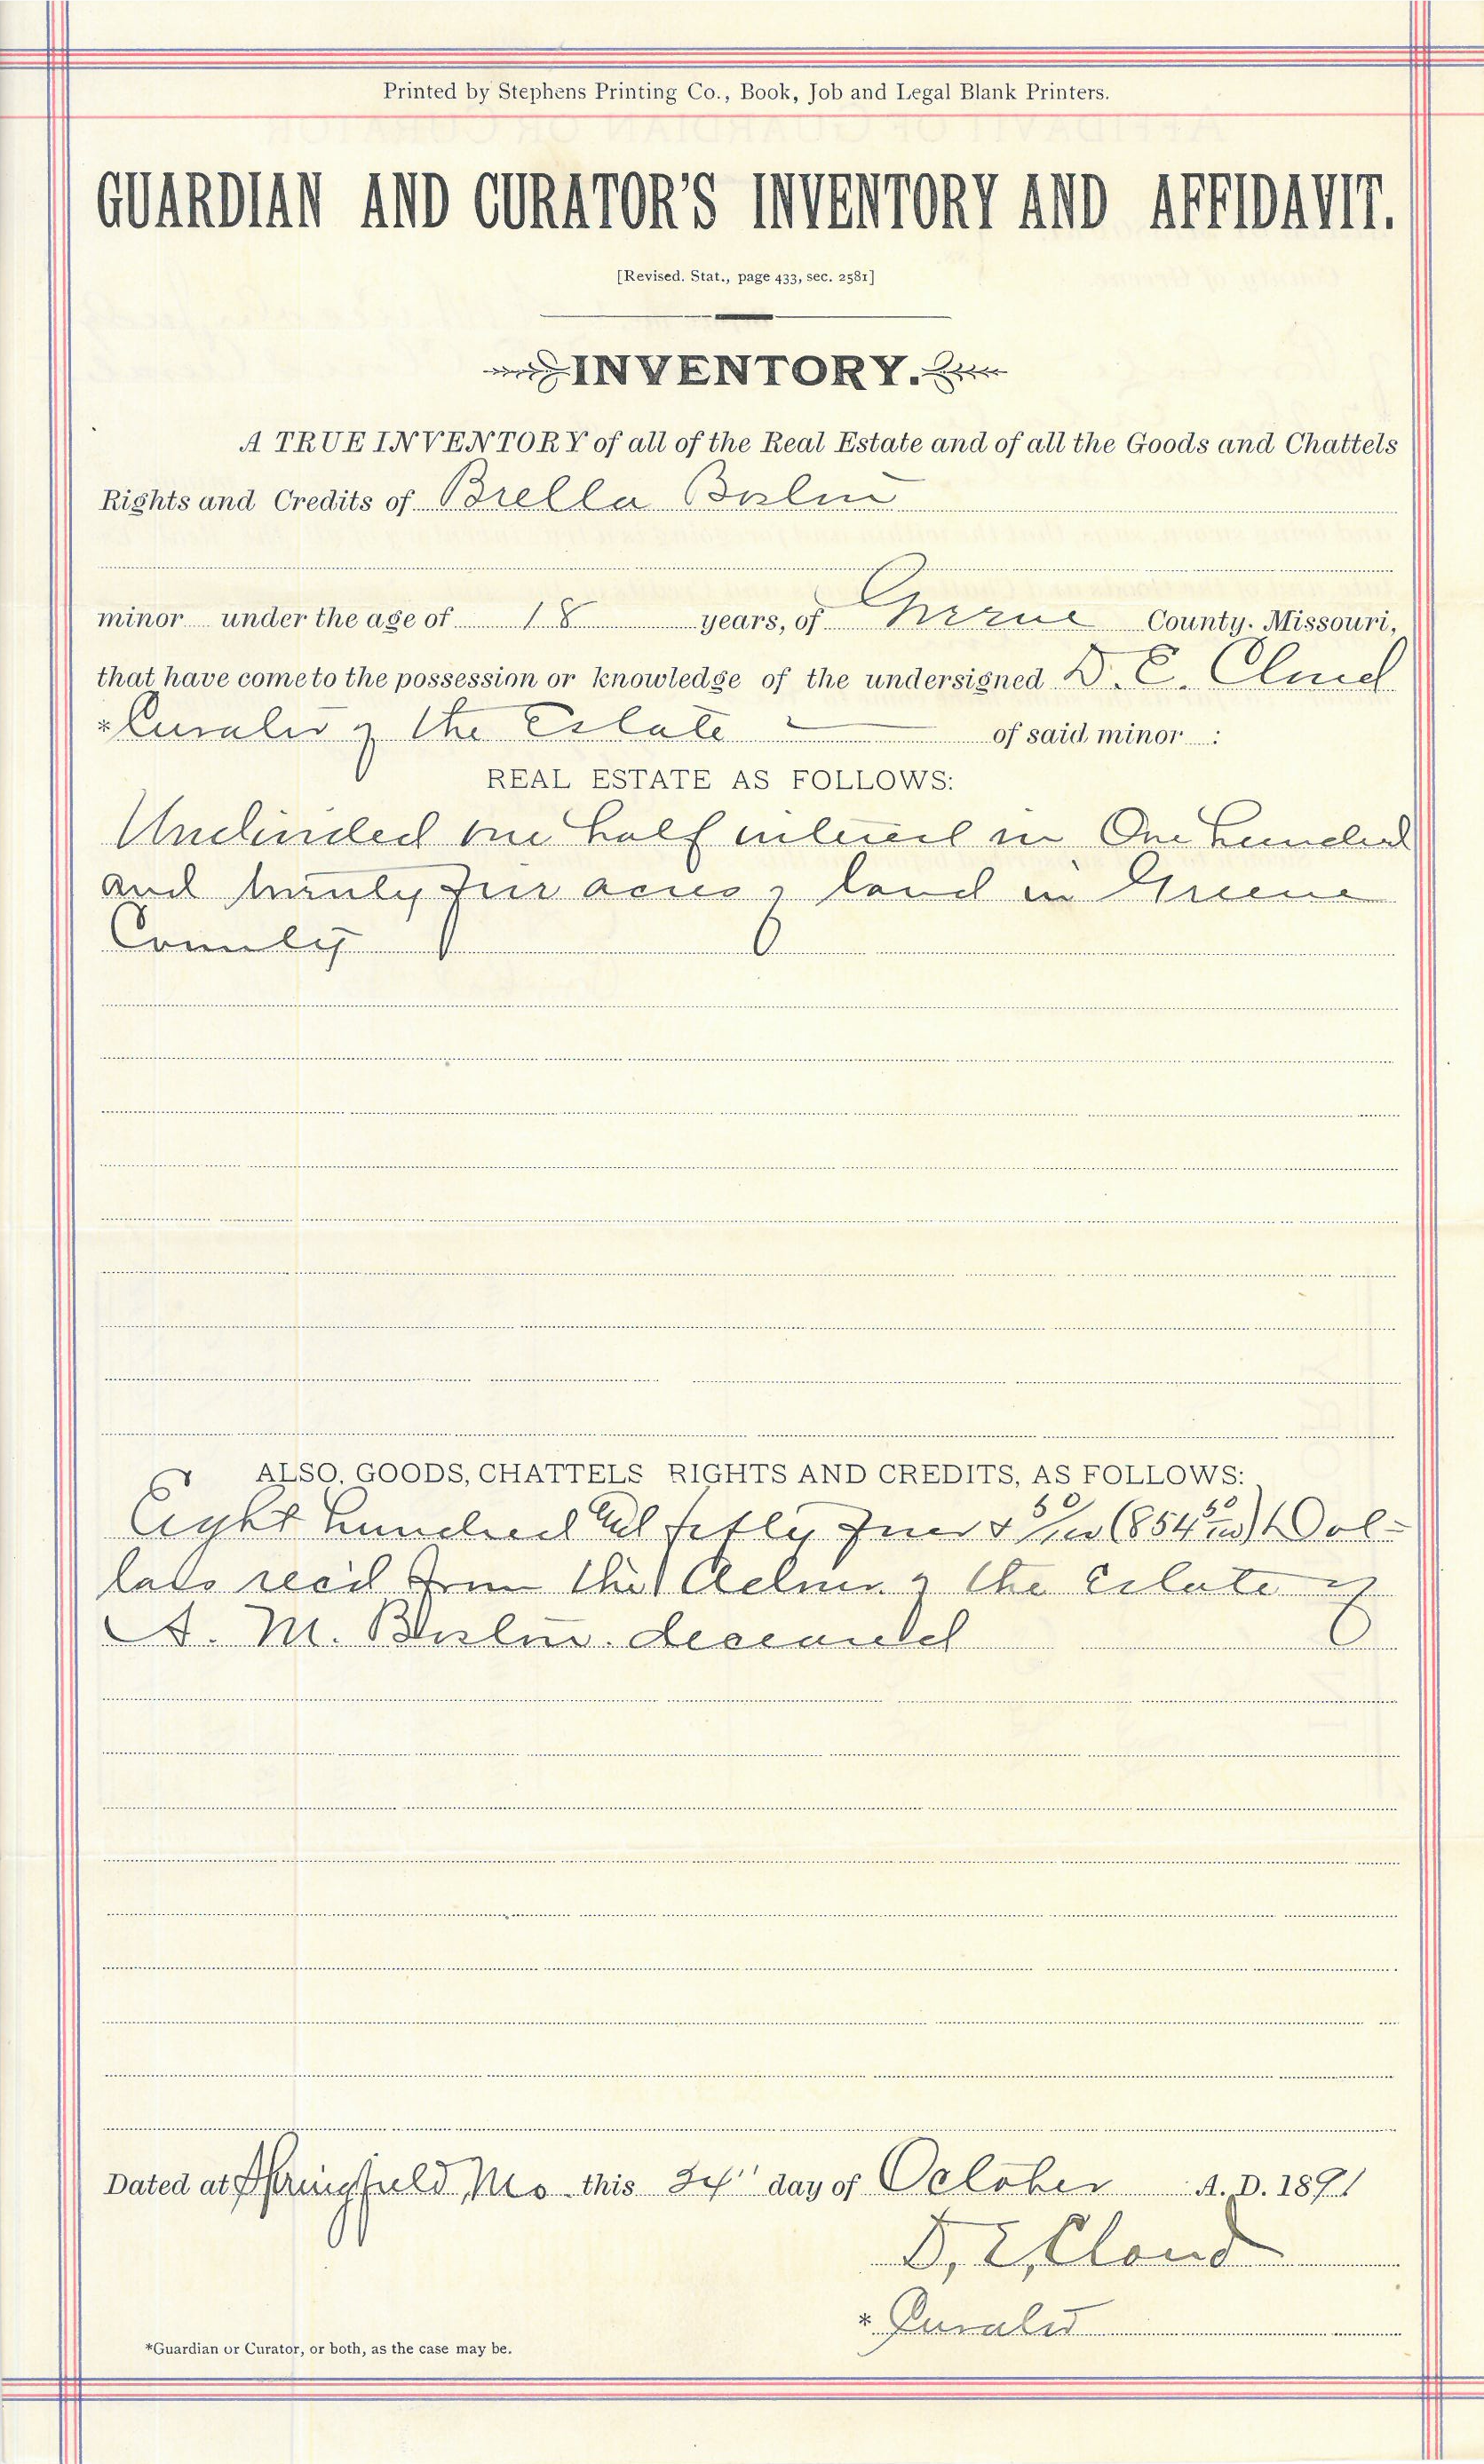 Printed by Stephens Printing Co., Book, Job and Legal Blank Printers.
GUARDIAN AND CURATOR'S INVENTORY AND AFFIDAVIT.
[Revised. Stat., page 433, sec. 2581]
INVENTORY.
A TRUE INVENTORY of all of the Real Estate and of all the Goods and Chattels
Rights and Credits of Brella
minor under the age of 18 years, of Greene County. Missouri,
that have come to the possession or knowledge of the undersigned D. E. Cloud
*Curator of the Estate of said minor :
REAL ESTATE AS FOLLOWS:
Undivided one half interest in One hundred
and twenty acres of land in Greene
County
ALSO, GOODS, CHATTELS RIGHTS AND CREDITS, AS FOLLOWS:
Eight hundred and fifty four & 50/100 (854 50/100) Dol=
lars rec'd from the Admr. of the Estate of
A. M. deceased
Dated at Springfield, Mo this 24" day of October A. D. 1891
D, E, Cloud
* Curator
*Guardian or Curator, or both, as the case may be.